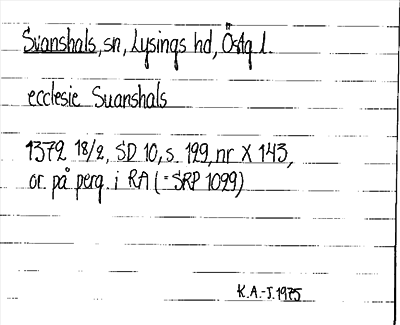 Svanshals, sn, Lysings hd, Östg l.
ecclesie Suanshals
1372 18/2, SD 10, s. 129, nr X 143,
or. på perg. i RA (=SRP 1029)
K.A.-J. 1975